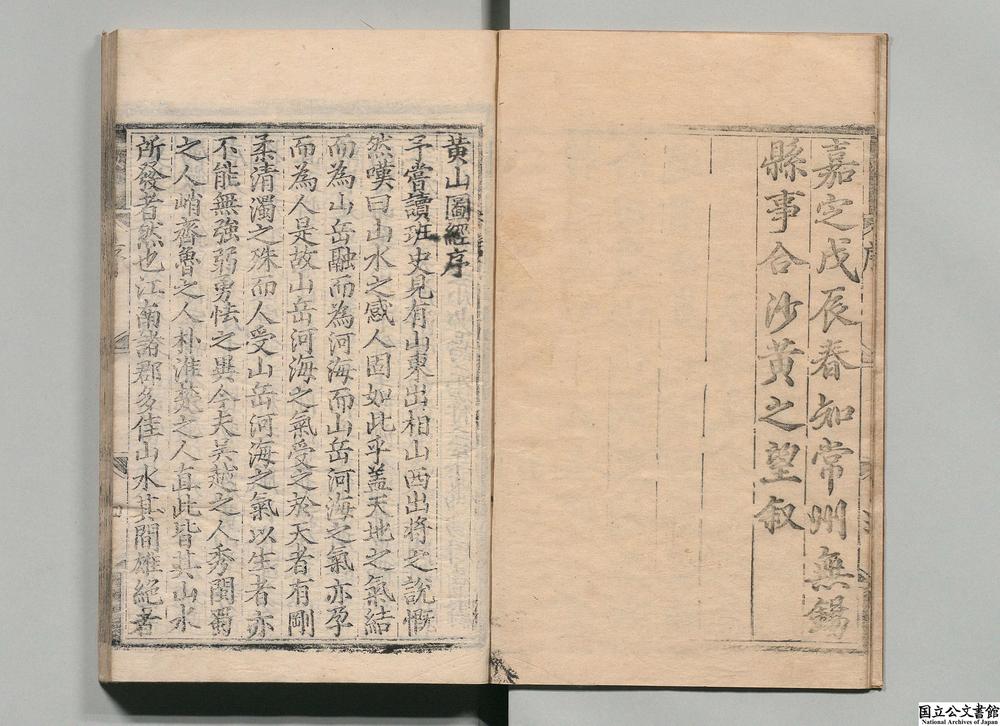 嘉定戊辰春知常州無錫
縣事合沙黄之望叙
黄山圖經序
予嘗讀班史見有山東出相山西出将之說慨
然嘆曰山水之感人固如此乎盖天地之氣結
而為山岳融而為河海而山岳河海之氣亦孕
而為人是故山岳河海之氣受之於天者有剛
柔清濁之殊而人受山岳河海之氣以生者亦
不能無強弱勇怯之異今夫吴越之人秀閩蜀
之人峭齊魯之人朴淮
之人直此皆其山水
所發者然也江南諸郡多佳山水其間雄絶者
序
国立公文書館
National Archives of Japan